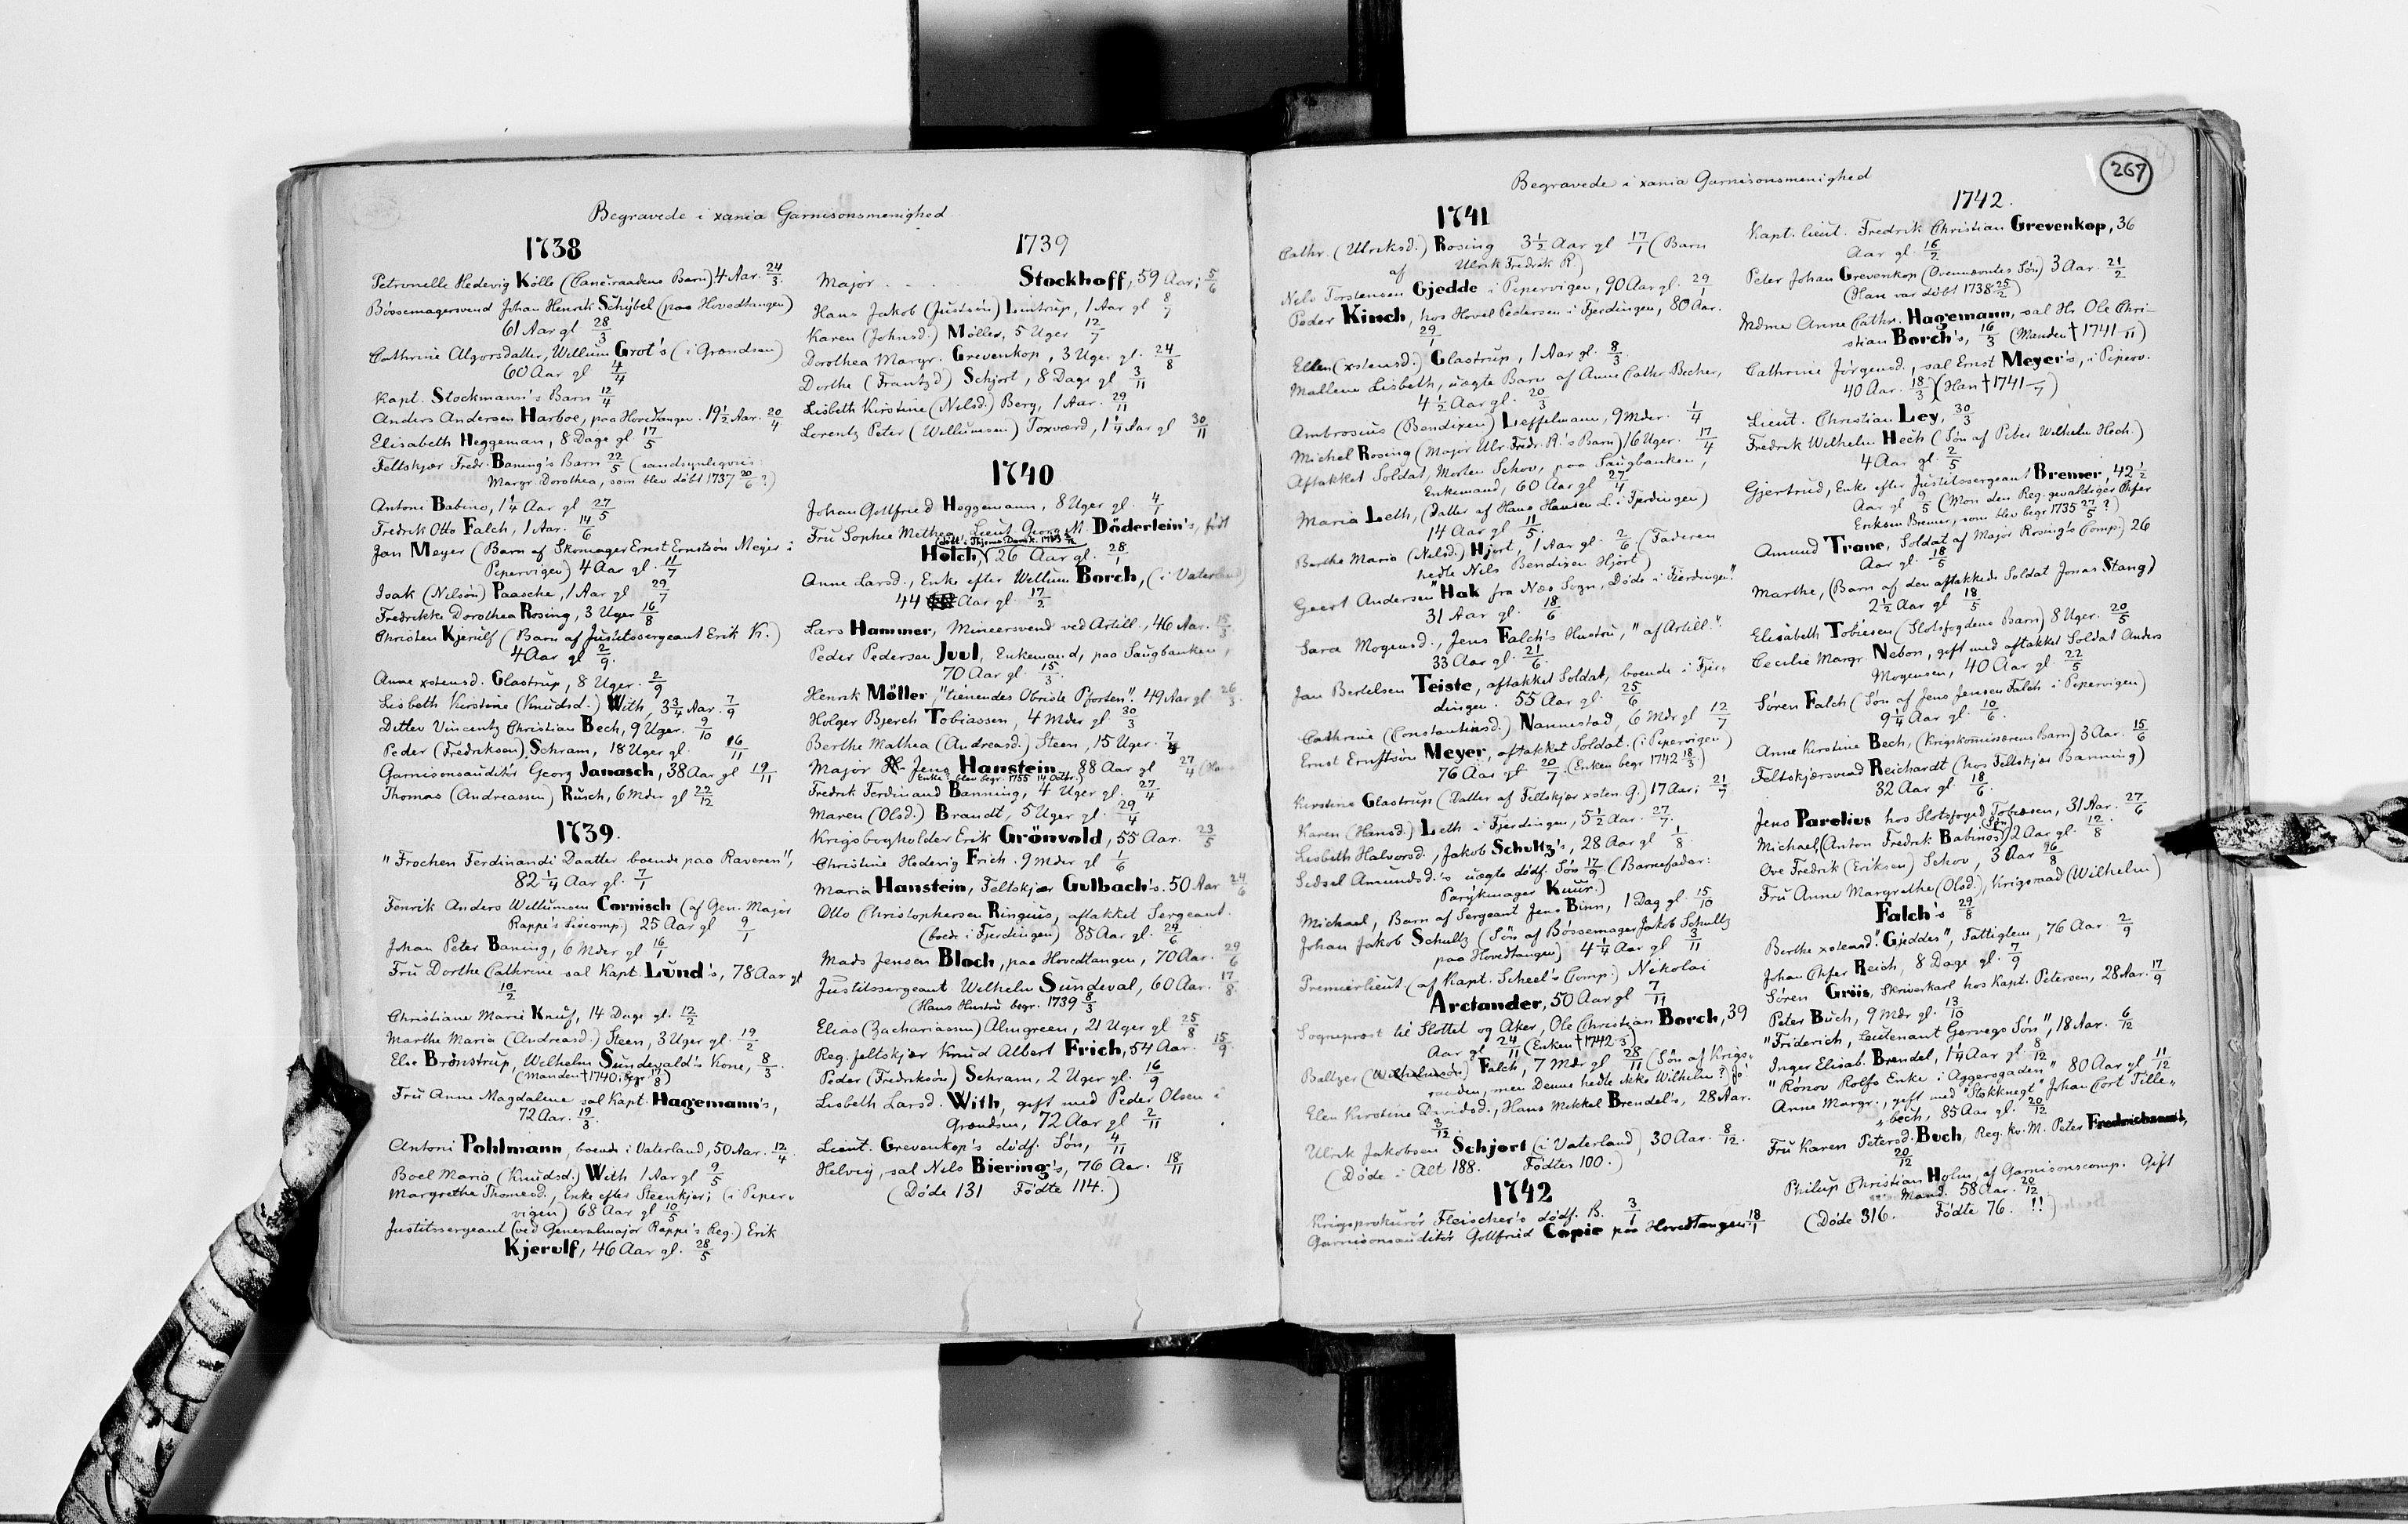 Begravede i xania Garnisonsmenighed
1738
Petronelle Hedevig Kölle (Canc.raadens Barn) 4 Aar. 24/3
Bössemagersvend Johan Henrik Schybel (paa Hovedtangen)
61 Aar gl 28/3
Cathrine Algorsdatter, Willum Grot's (i Grændsen)
60 Aar gl 4/4
Kapt. Stockmann's Barn 12/4
Anders Andersen Harboe, paa Hovedtangen. 19½ Aar. 20/4
Elisabeth Heggeman, 8 Dage gl 17/5
Feltskjær Fredr. Baning's Barn 22/5 (sandsynligvis
Margr. Dorothea, som blev döbt 1737 20/6 ?)
Antoni Babino, 1¼ Aar gl 27/5
Fredrik Otto Falch, 1 Aar. 14/6
Jan Meyer (Barn af Skomager Ernst Ernstsön Meyer i
Pipervigen) 4 Aar gl. 11/7
Isak (Nilsön) Paasche, 1 Aar gl 29/7
Fredrikke Dorothea Rosing, 3 Uger 16/8
Christen Kjerulf (Barn af Justitssergeant Erik K.)
4 Aar gl 2/9.
Anne xstensd. Glastrup, 8 Uger. 2/9
Lisbeth Kirstine (Knudsd.) With, 3¾ Aar. 7/9
Ditlev Vincentz Christian Bech, 9 Uger. 9/10
Peder (Fredriksen) Schram, 18 Uger gl. 16/11
Garnisonsauditör Georg Janasch, 38 Aar gl 19/11
Thomas (Andreassen) Rusch, 6 Mder gl 22/12
1739.
"Frochen Ferdinandi Daatter boende paa Raveren",
82¼ Aar gl. 7/1
Fenrik Anders Willumsen Cornisch (af Gen. Major
Rappe's Livcomp.) 25 Aar gl 9/1
Johan Peter Baning, 6 Mder gl 16/1
Fru Dorthe Cathrine sal Kapt. Lund's, 78 Aar gl
10/2
Christiane Marie Knuf, 14 Dage gl. 12/2
Marthe Maria (Andreasd.) Steen, 3 Uger gl. 19/2
Else Brönstrup, Wilhelm Sundewald's Kone, 8/3
(Manden † 1740, begr 17/8)
Fru Anne Magdalene sal Kapt. Hagemann's,
72 Aar. 19/3.
Antoni Pohlmann, boende i Vaterland, 50 Aar. 12/4.
Boel Maria (Knudsd.) With 1 Aar gl 9/5
Margrethe Thomesd., Enke efter Steenkjer; (i Piper-
vigen) 68 Aar gl 10/5
Justitssergeant (ved Generalmajor Rappe's Reg.) Erik
Kjerulf, 46 Aar gl. 28/5
1739
Major . . . . Stockhoff, 59 Aar; 5/6
Hans Jakob (Justsön) Lintrup, 1 Aar gl 8/7
Karen (Johnsd.) Möller, 5 Uger 12/7
Dorothea Margr. Grevenkop, 3 Uger gl. 24/8
Dorthe (Frantzd) Schjort, 8 Dage gl 3/11
Lisbeth Kirstine (Nilsd.) Berg, 1 Aar. 29/11
Lorentz Peter (Willumsen) Toxværd, 1¼ Aar gl 30/11
1740
Johan Gottfried Heggemann, 8 Uger gl. 4/1
Fru Sophie Mithea, Lieut. Georg M. Döderlein's, födt
Holch, 26 Aar gl. 28/1
Anne Larsd., Enke efter Willum Borch, (i Vaterland)
44 Aar gl. 17/2
Lars Hammer, Mineersvend ved Artill., 46 Aar. 15/3
Peder Pedersen Juul, Enkemand, paa Saugbanken,
70 Aar gl. 15/3.
Henrik Möller, "tienendes Obriste Pforden", 49 Aar gl 26/3.
Holger Bjerch Tobiassen, 4 Mder gl 30/3
Berthe Mathea (Andreasd.) Steen, 15 Uger. 7/4
Major Jens Hanstein, 88 Aar gl 27/4 (Hans
Enke blev begr. 1755 14 Octbr.)
Fredrik Ferdinand Banning, 4 Uger gl. 27/4
Maren (Olsd.) Brandt, 5 Uger gl. 29/4
Krigsbogholder Erik Grönvold, 55 Aar. 23/5
Christine Hedevig Frich. 9 Mder gl 1/6
Maria Hanstein, Feltskjær Gulbach's. 50 Aar 24/6
Otto Christophersen Ringius, aftakket Sergeant.
(boede i Fjerdingen) 85 Aar gl. 24/6
Mads Jensen Bloch, paa Hovedtangen, 70 Aar. 29/6
Justitssergeant Wilhelm Sundeval, 60 Aar. 17/8.
(Hans Hustru begr. 1739 8/3
Elias (Zachariassen) Almgreen, 21 Uger gl 25/8
Reg. feltskjær Knud Albert Frich, 54 Aar. 15/9.
Peder (Fredriksön) Schram, 2 Uger gl. 16/9
Lisbeth Larsd. With, gift med Peder Olsen i
Grændsen, 72 Aar gl 2/11
Lieut. Grevenkop's dödf. Sön, 4/11
Helvig, sal Nils Biering's, 76 Aar. 18/11
(Döde 131 Födte 114.)
Begravede i xania Garnisonsmenighed
267
1741
Cathr. (Ulriksd.) Rosing 3½ Aar gl 17/1 (Barn
af Ulrik Fredrik R.)
Nils Torstensen Gjedde i Pipervigen, 90 Aar gl. 29/1
Peder Kinch, hos Hovel Pedersen i Fjerdingen, 80 Aar.
29/1
Ellen (xstensd.) Glastrup, 1 Aar gl. 8/3.
Mallene Lisbeth, uægte Barn af Anne Cathr Becher,
4½ Aar gl. 20/3
Ambrosius (Bendixen) Leffelmann, 9 Mder. 1/4
Michel Rosing (Major Ulr. Fredr. R.'s Barn) 16 Uger. 17/4
Aftakket Soldat, Morten Schov, paa Saugbanken,
Enkemand, 60 Aar gl 27/4
Maria Leth, (Datter af Hans Hansen L. i Fjerdingen)
14 Aar gl 11/5.
Berthe Maria (Nilsd.) Hjort, 1 Aar gl. 2/6 (Faderen
hedte Nils Bendixen Hjort)
Geert Andersen "Hak fra Næs Sogn, Döde i Fierdingen".
31 Aar gl. 18/6
Sara Mogensd., Jens Falch's Hustru, "af Artill."
33 Aar gl. 21/6.
Jan Bertelsen Teiste, aftakket Soldat, boende i Fjer-
dingen. 55 Aar gl. 25/6
Cathrine (Constantinsd.) Nannestad, 6 Mdr gl 12/7
Ernst Ernstsön Meyer, aftakket Soldat. (i Pipervigen)
76 Aar gl 20/7. (Enken begr 1742 18/3.)
Kirstine Glastrup (Datter af Feltskjær xsten G.) 17 Aar; 21/7
Karen (Hansd.) Leth i Fjerdingen, 5½ Aar. 27/7.
Lisbeth Halvorsd., Jakob Schultz's, 28 Aar gl 1/8.
Sidsel Amundsd.'s uægte dödf. Sön 17/9 (Barnefader:
Parykmager Knur.)
Michael, Barn af Sergeant Jens Binn, 1 Dag gl. 15/10
Johan Jakob Schultz (Sön af Bössemager Jakob Schultz
paa Hovedtangen) 4¼ Aar gl 3/11
Premierlieut (af Kapt. Scheel's Comp.) Nikolai
Arctander, 50 Aar gl 7/11
Sogneprest til Slottet og Aker, Ole Christian Borch, 39
Aar gl 24/11 (Enken † 1742 3)
Baltzer (Wilhelmsön) Falch, 7 Mdr gl 28/11 (Sön af Krigs-
raaden, men denne hedte ikke Wilhelm? Jo!
Elen Kirstine Davidsd., Hans Mikkel Brendel's, 28 Aar.
3/12.
Ulrik Jakobsen Schjort (i Vaterland) 30 Aar. 8/12.
(Döde i Alt 188. Födtes 100.)
1742
Krigsprokurör Fleischer's dödf. B. 3/1
Garnisonsauditör Gottfried Copie paa Hovedtangen 18/1
1742.
Kapt. lieut. Fredrik Christian Grevenkop, 36
Aar gl 16/2
Peter Johan Grevenkop (Ovennævntes Sön) 3 Aar. 21/2
(Han var döbt 1738 25/2)
Mdme Anne Cathr. Hagemann, sal Hr Ole Chri-
stian Borch's, 16/3 (Manden † 1741 /11)
Cathrine Jörgensd., sal Ernst Meyer's, i Piperv.
40 Aar. 18/3 (Han † 1741 /7)
Lieut. Christian Ley, 30/3
Fredrik Wilhelm Hech (Sön af Peter Wilhelm Hech.)
4 Aar gl. 2/5
Gjertrud, Enke efter Justitssergeant Bremer, 42½
Aar gl 9/5 (Mon den Reg. gevaldiger Chfer
Eriksen Bremer, som blev begr 1735 27/5 ?)
Amund Trane, Soldat af Major Rosing's Comp.) 26
Aar gl. 18/5
Marthe, (Barn af den aftakkede Soldat Jonas Stang)
2½ Aar gl 18/5
Elisabeth Tobiesen (Slotsfogdens Barn) 8 Uger. 20/5
Cecilie Margr. Nebon, gift med aftakket Soldat Anders
Mogensen, 40 Aar gl. 22/5
Sören Falch (Sön af Jens Jensen Falch i Pipervigen)
9¼ Aar gl. 10/6.
Anne Kirstine Bech, (Krigskommissærens Barn) 3 Aar. 15/6
Feltskjærsvend Reichardt (hos Feltskjær Banning)
32 Aar gl 18/6.
Jens Parelius hos Slotsfoged Tobiesen, 31 Aar. 27/6
Michael (Anton Fredrik Babinos Sön) 2 Aar gl. 12/8
Ove Fredrik (Eriksen) Schov, 3 Aar 26/8
Fru Anne Margrethe (Olsd.), Krigsraad (Wilhelm)
Falch's 29/8
Berthe xstensd. "Gjeddes", Fattiglem, 76 Aar 2/9
Johan Chfer Reich, 8 Dage gl. 7/9
Sören Griis, Skriverkarl hos Kapt. Petersen, 28 Aar. 17/9
Peter Buch, 9 Mdr gl. 13/10
"Friderich, Leutenant Gervegs Sön", 18 Aar. 6/12
Inger Elisab. Brendel, 1¼ Aar gl 8/12
"Rönov Rolfs Enke i Aggersgaden" 80 Aar gl 11/12
Anne Margr., gift med "Stokknegt" Johan Cort Tille-
bech, 85 Aar gl. 20/12
Fru Karen Petersd. Buch, Reg. kv. M. Peter
20/12
Philip Christian Holm, af Garnisonscomp. Gift
Mand. 58 Aar. 20/12
(Döde 316. Födte 76. !!)